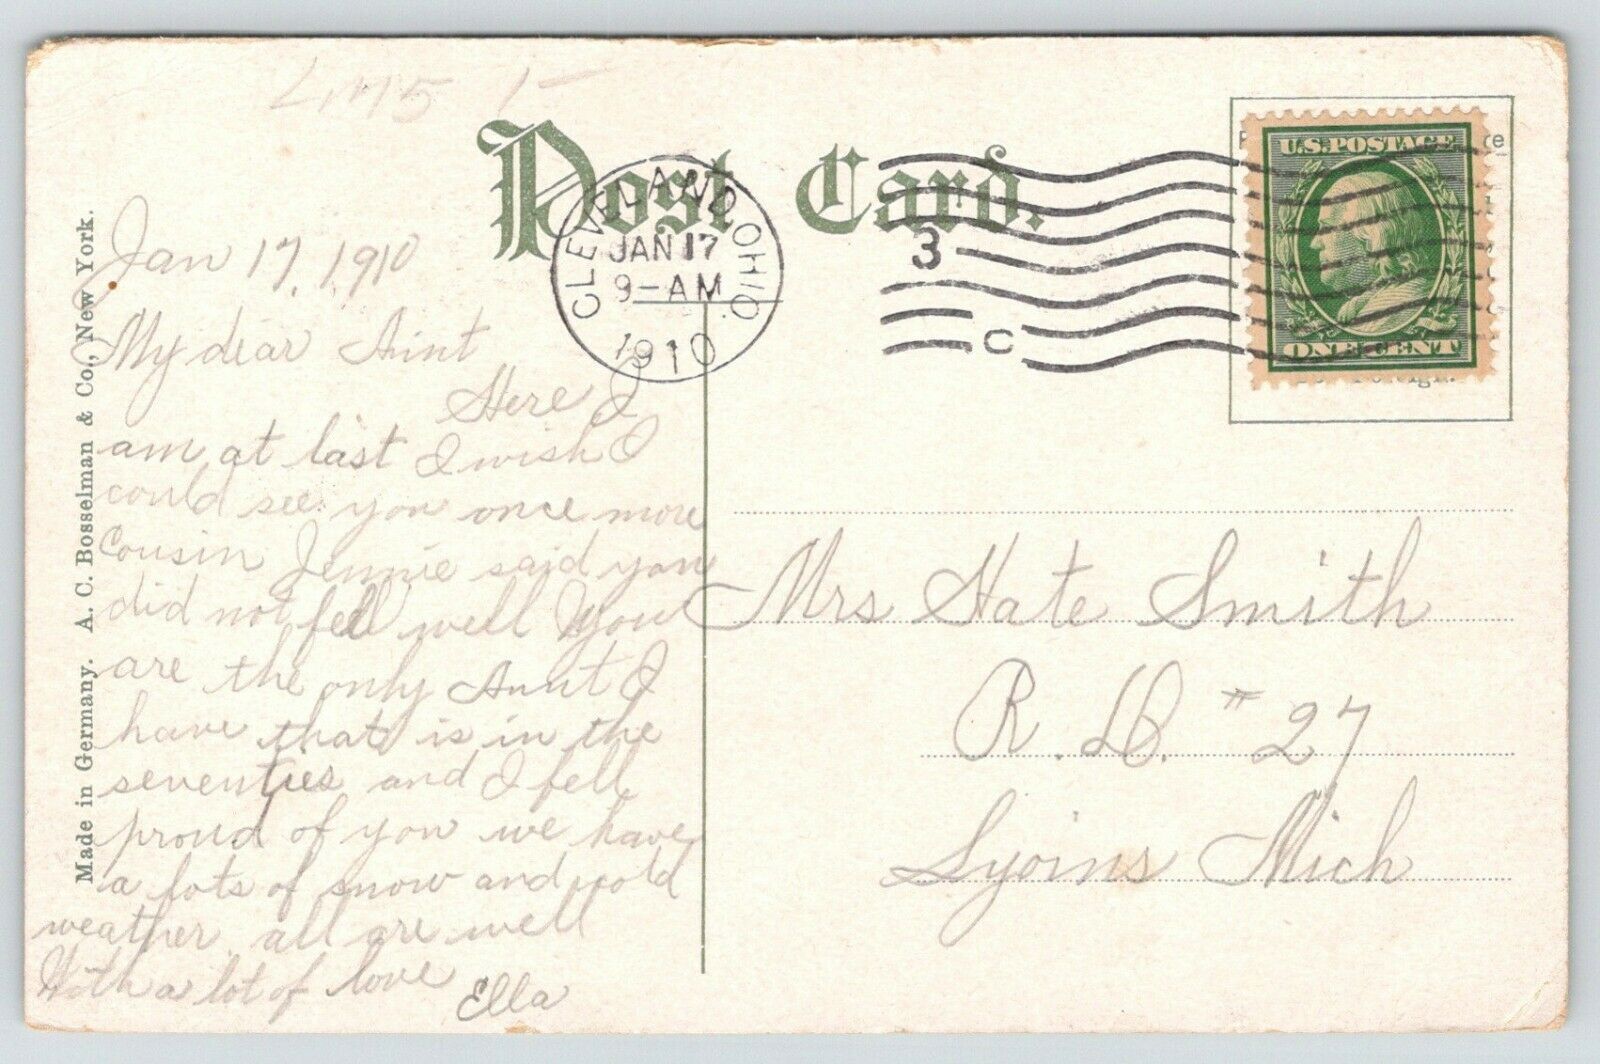 Post Card.
CLEVELAND, OHIO.
JAN 17
9-AM
1910
3
C
U.S.POSTAGE
ONE CENT
Made in Germany. A. C. Bosselman & Co., New York.
Jan 17, 1910
My dear Aint
Here I
am at last I wish I
could see you once more
Cousin Jennie said you
did not fell well You
are the only Aunt I
have that is in the
seventies and I fell
proud of you we have
a lots of snow and cold
weather all are well
With a lot of love
Ella
Mrs Kate Smith
R. D. # 27
Lyoins Mich